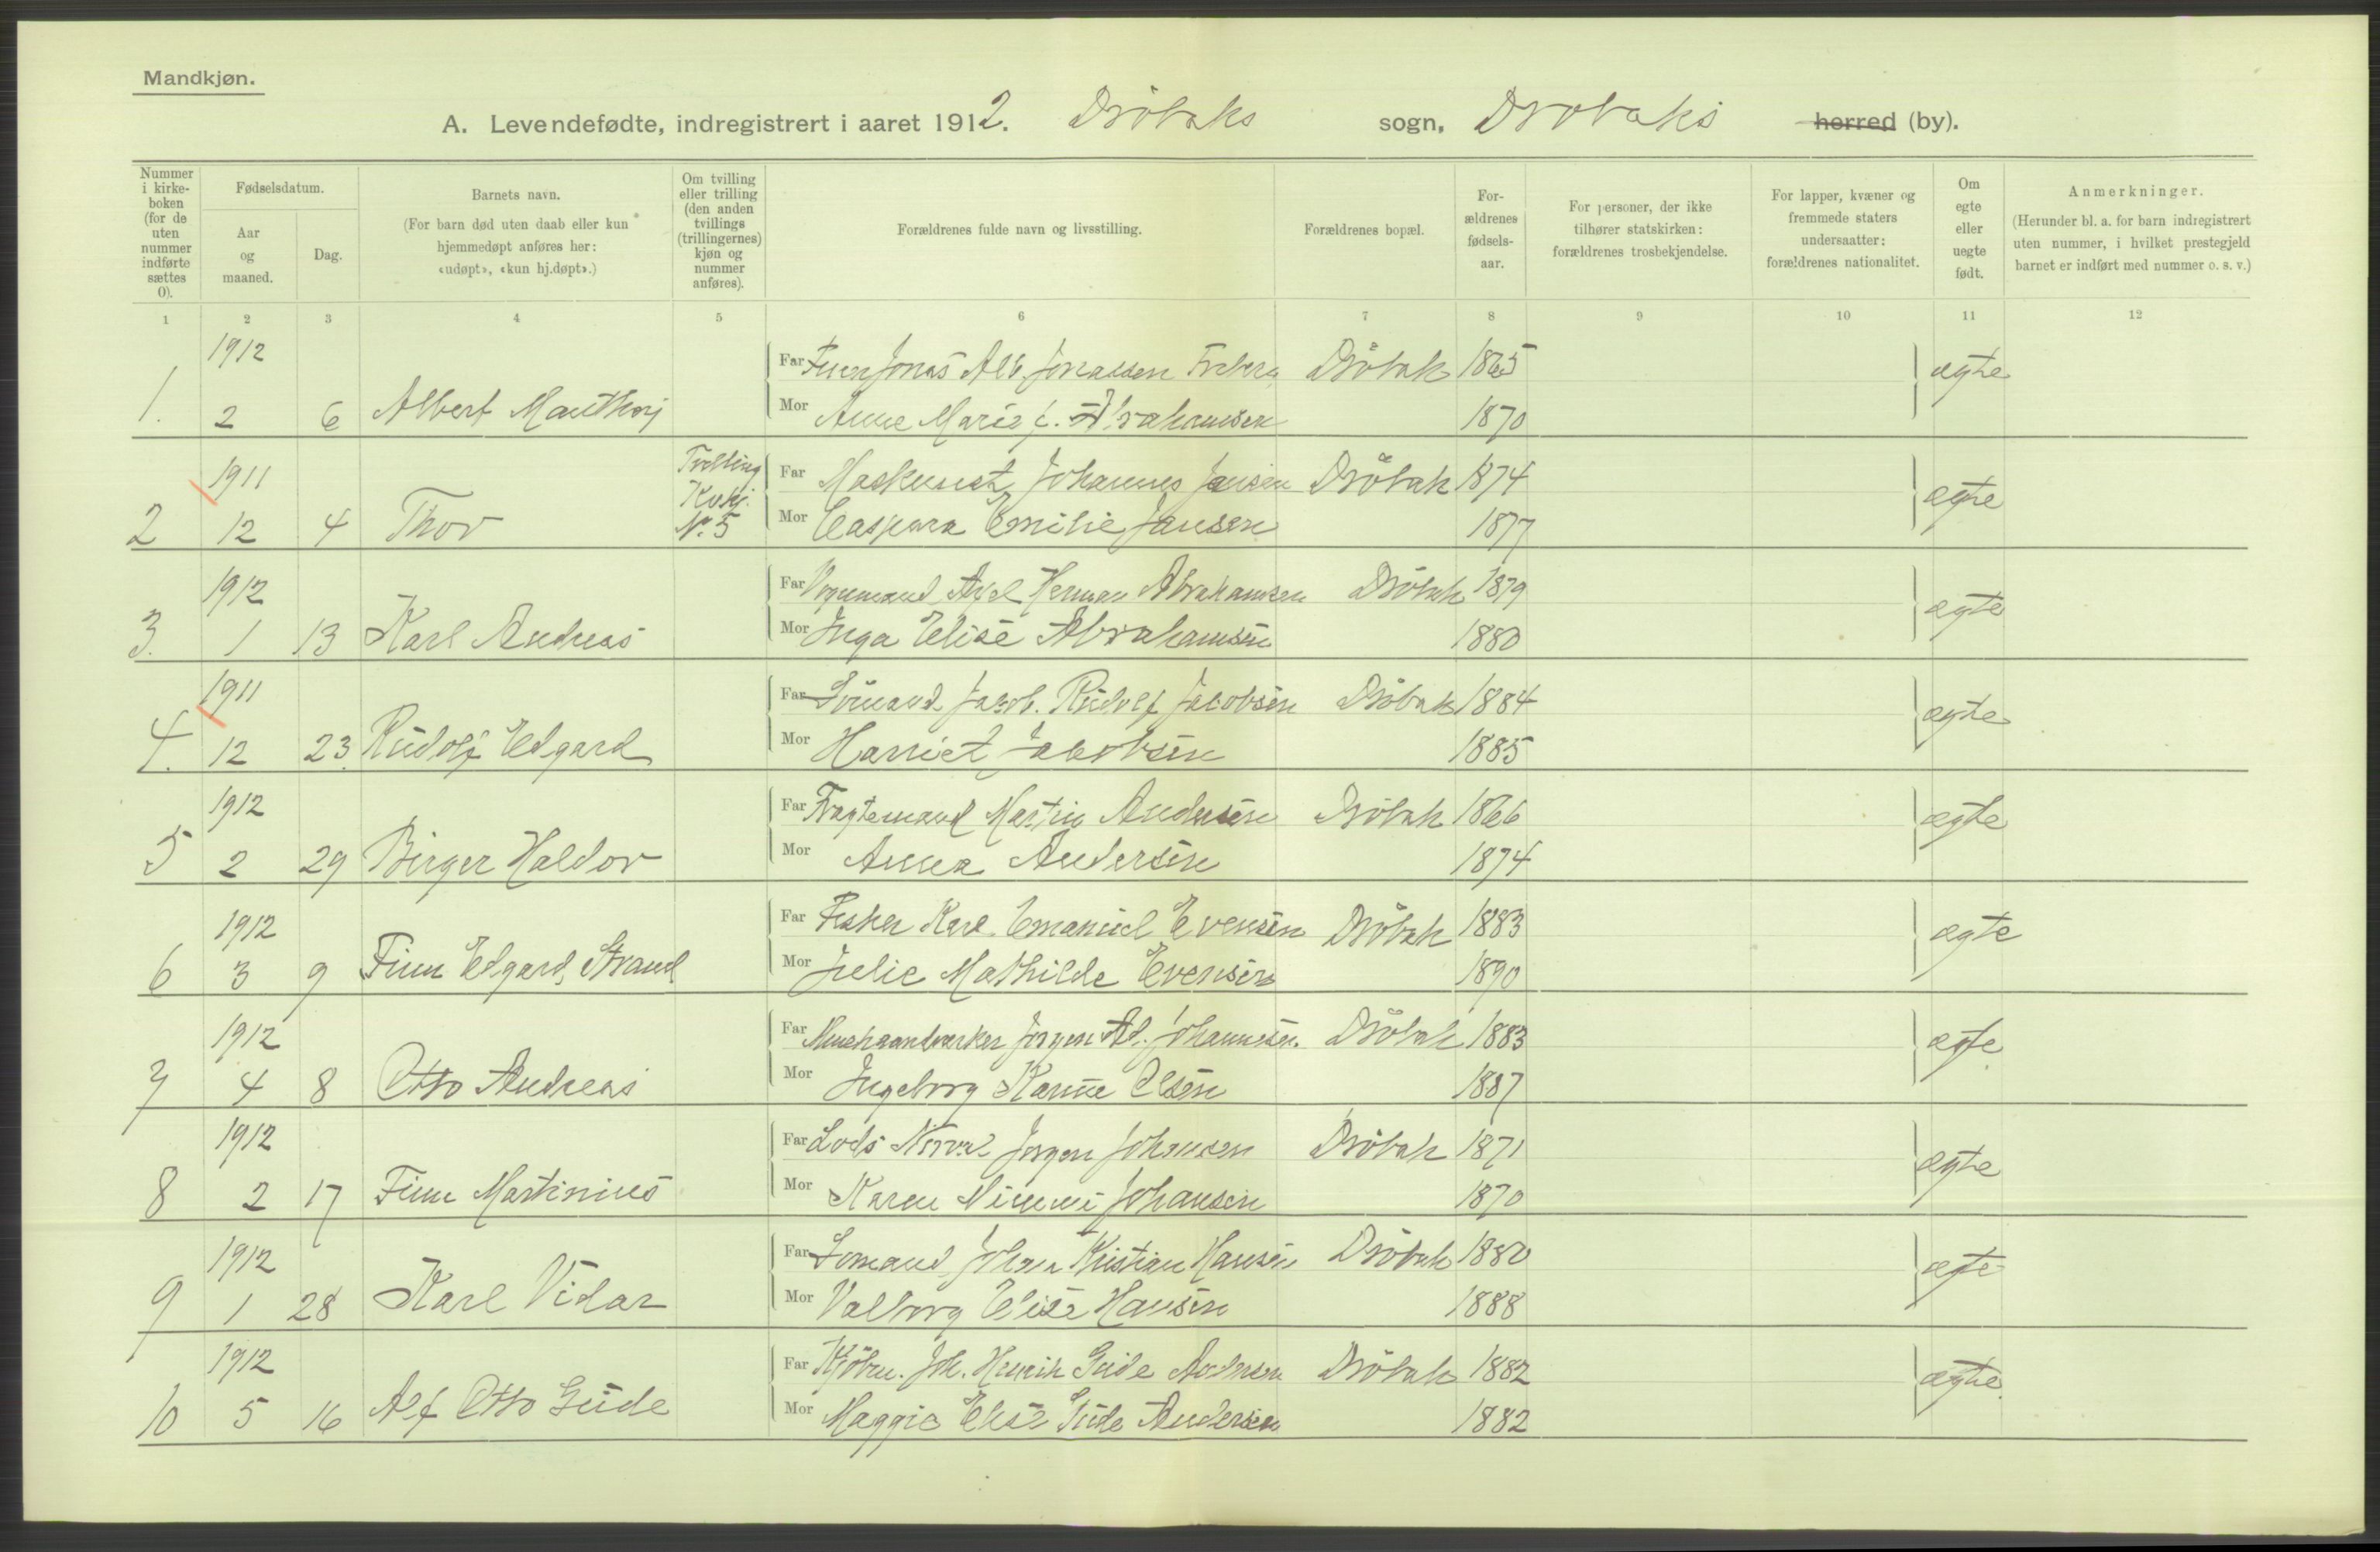 Mandkjøn.
A. Levendefødte, indregistrert i aaret 1912. Drøbaks sogn, Drøbaks herred (by).
Nummer
i kirke-
boken
(for de
uten
nummer
indførte
sættes
0).
Fødselsdatum.
Aar
og
maaned.
Dag.
Barnets navn.
(For barn død uten daab eller kun
hjemmedøpt anføres her:
«udøpt», «kun hj.døpt».)
Om tvilling
eller trilling
(den anden
tvillings
(trillingernes)
kjøn og
nummer
anføres).
Forældrenes fulde navn og livsstilling.
Forældrenes bopæl.
For-
ældrenes
fødsels-
aar.
For personer, der ikke
tilhører statskirken:
forældrenes trosbekjendelse.
For lapper, kvæner og
fremmede staters
undersaatter:
forældrenes nationalitet.
Om
egte
eller
uegte
født.
Anmerkninger.
(Herunder bl. a. for barn indregistrert
uten nummer, i hvilket prestegjeld
barnet er indført med nummer o. s. v.)
1 2 3 4 5 6 7 8 9 10 11 12
1912 Far Jonas Alb. Jonassen Drøbak 1865 ægte
1. 2 6 Albert Mor Anne Marie f. Abrahamsen 1870
1911 Tvilling Kvkj. Far Maskinist Johannes Jansen Drøbak 1874 ægte
2 12 4 Thor Nr. 5 Mor Caspara Emilie Jansen 1877
1912 Far Vognmand Axel Herman Abrahamsen Drøbak 1879 ægte
3. 1 13 Karl Andreas Mor Inga Elise Abrahamsen 1880
1911 Far Sömand Jacob Rudolf Jacobsen Drøbak 1884 ægte
4. 12 23 Rudolf Edgard Mor Harriet Jacobsen 1885
1912 Far Fragtemand Martin Andersen Drøbak 1866 ægte
5 2 29 Birger Haldor Mor Anna Andersen 1874
1912 Far Fisker Karl Emanuel Evensen Drøbak 1883 ægte
6 3 9 Finn Edgard Strand Mor Julie Mathilde Evensen 1890
1912 Far Murhaandverker Jørgen Ad. Johannesen Drøbak 1883 ægte
7 4 8 Otto Andreas Mor Ingeborg Karine Olsen 1887
1912 Far Lods Jørgen Johansen Drøbak 1871 ægte
8 2 17 Finn Martinius Mor Karen Johansen 1870
1912 Far Sømand Johan Kristian Hansen Drøbak 1880 ægte
9 1 28 Karl Vidar Mor Valborg Elise Hansen 1888
1912 Far Kjøbm. Joh. Henrik Gude Andersen Drøbak 1882 ægte
10 5 16 Alf Otto Gude Mor Maggie Elise Gude Andersen 1882